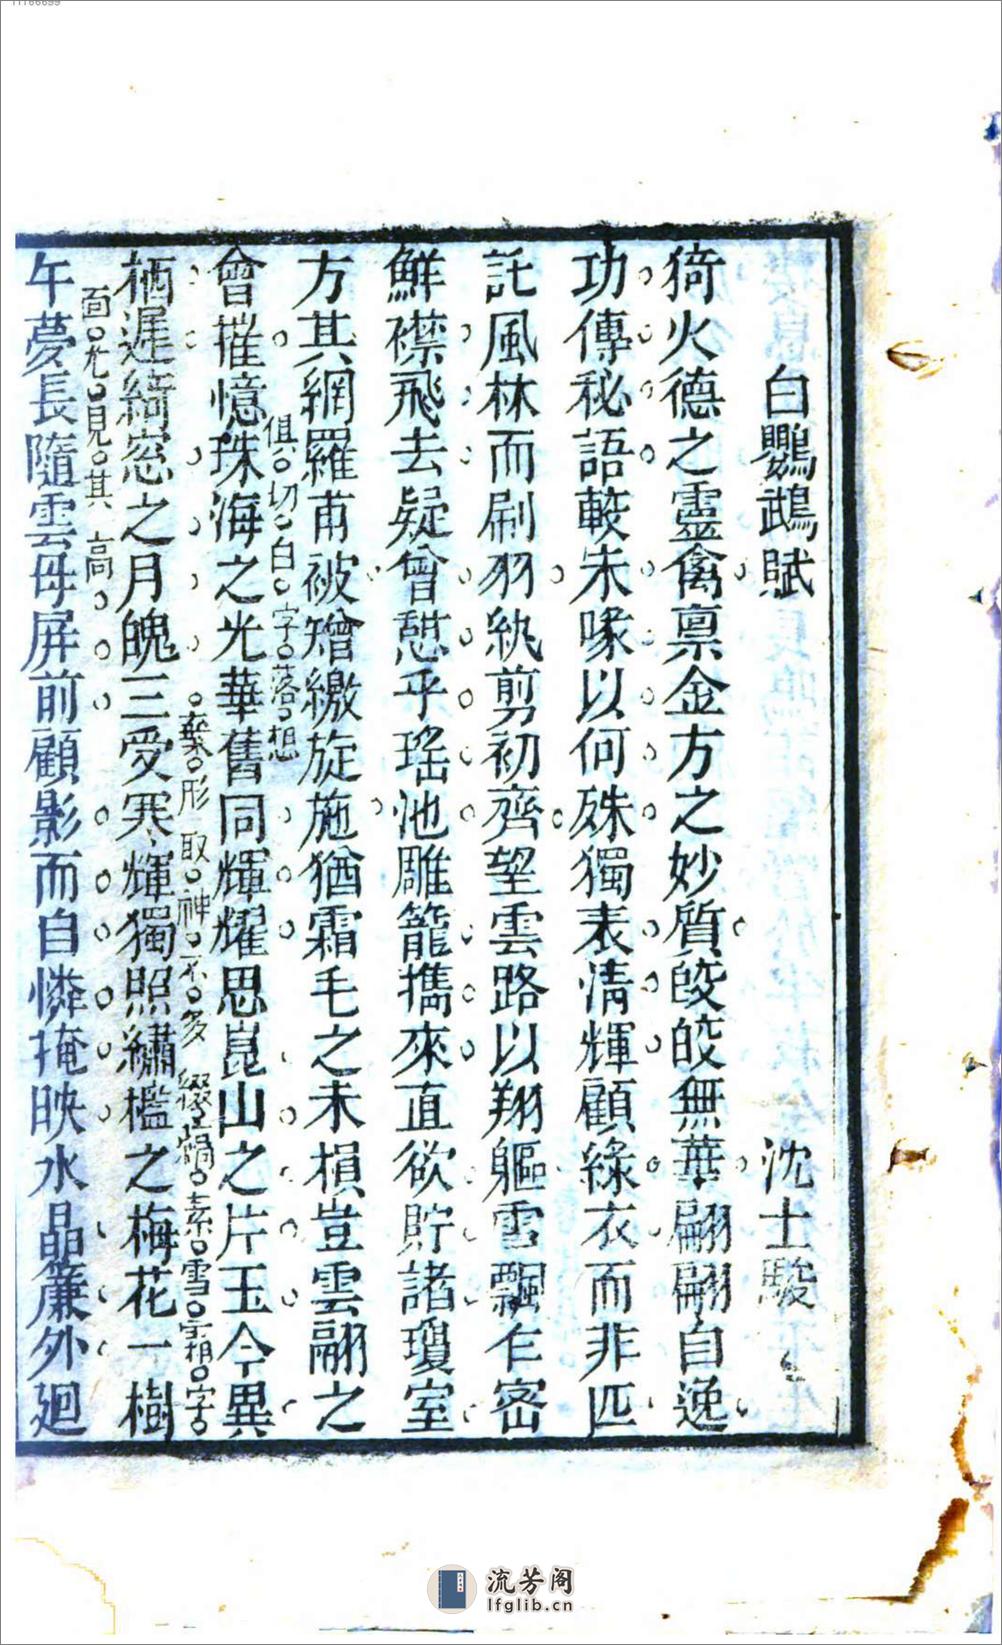 白鸚鵡賦 沈士駿
猗火德之靈禽禀金方之妙質皎皎無華翩翩自逸
功傳秘語較朱喙以何殊獨表清輝顧綠衣而非匹
託風林而刷羽紈剪初齊望雲路以翔軀雪飄乍密
鮮襟飛去疑曾憩乎瑤池雕籠擕來直欲貯諸瓊室
方其網羅甫被矰繳旋施猶霜毛之未損豈雲翮之
俱切白字落想
會摧憶珠海之光華舊同輝耀思崑山之片玉今異
棄形取神不多綴鶴素雪霜字
栖遲綺窓之月魄三更寒輝獨照繡檻之梅花一樹
面尤見其高
午夢長隨雲母屏前顧影而自憐掩映水晶簾外廻
流芳阁
lfglib.cn